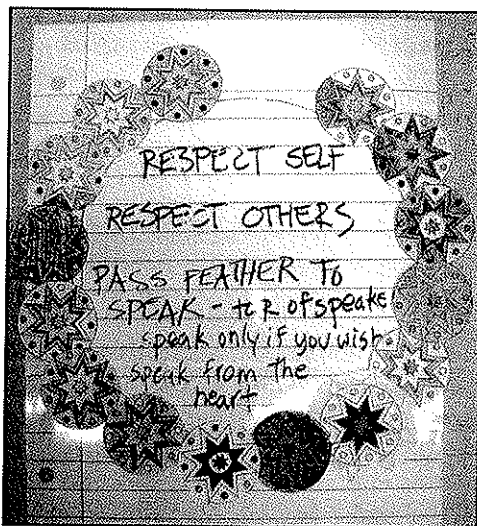 RESPECT SELF
RESPECT OTHERS
PASS FEATHER TO
SPEAK - to R of speaker
speak only if you wish
speak from the
heart